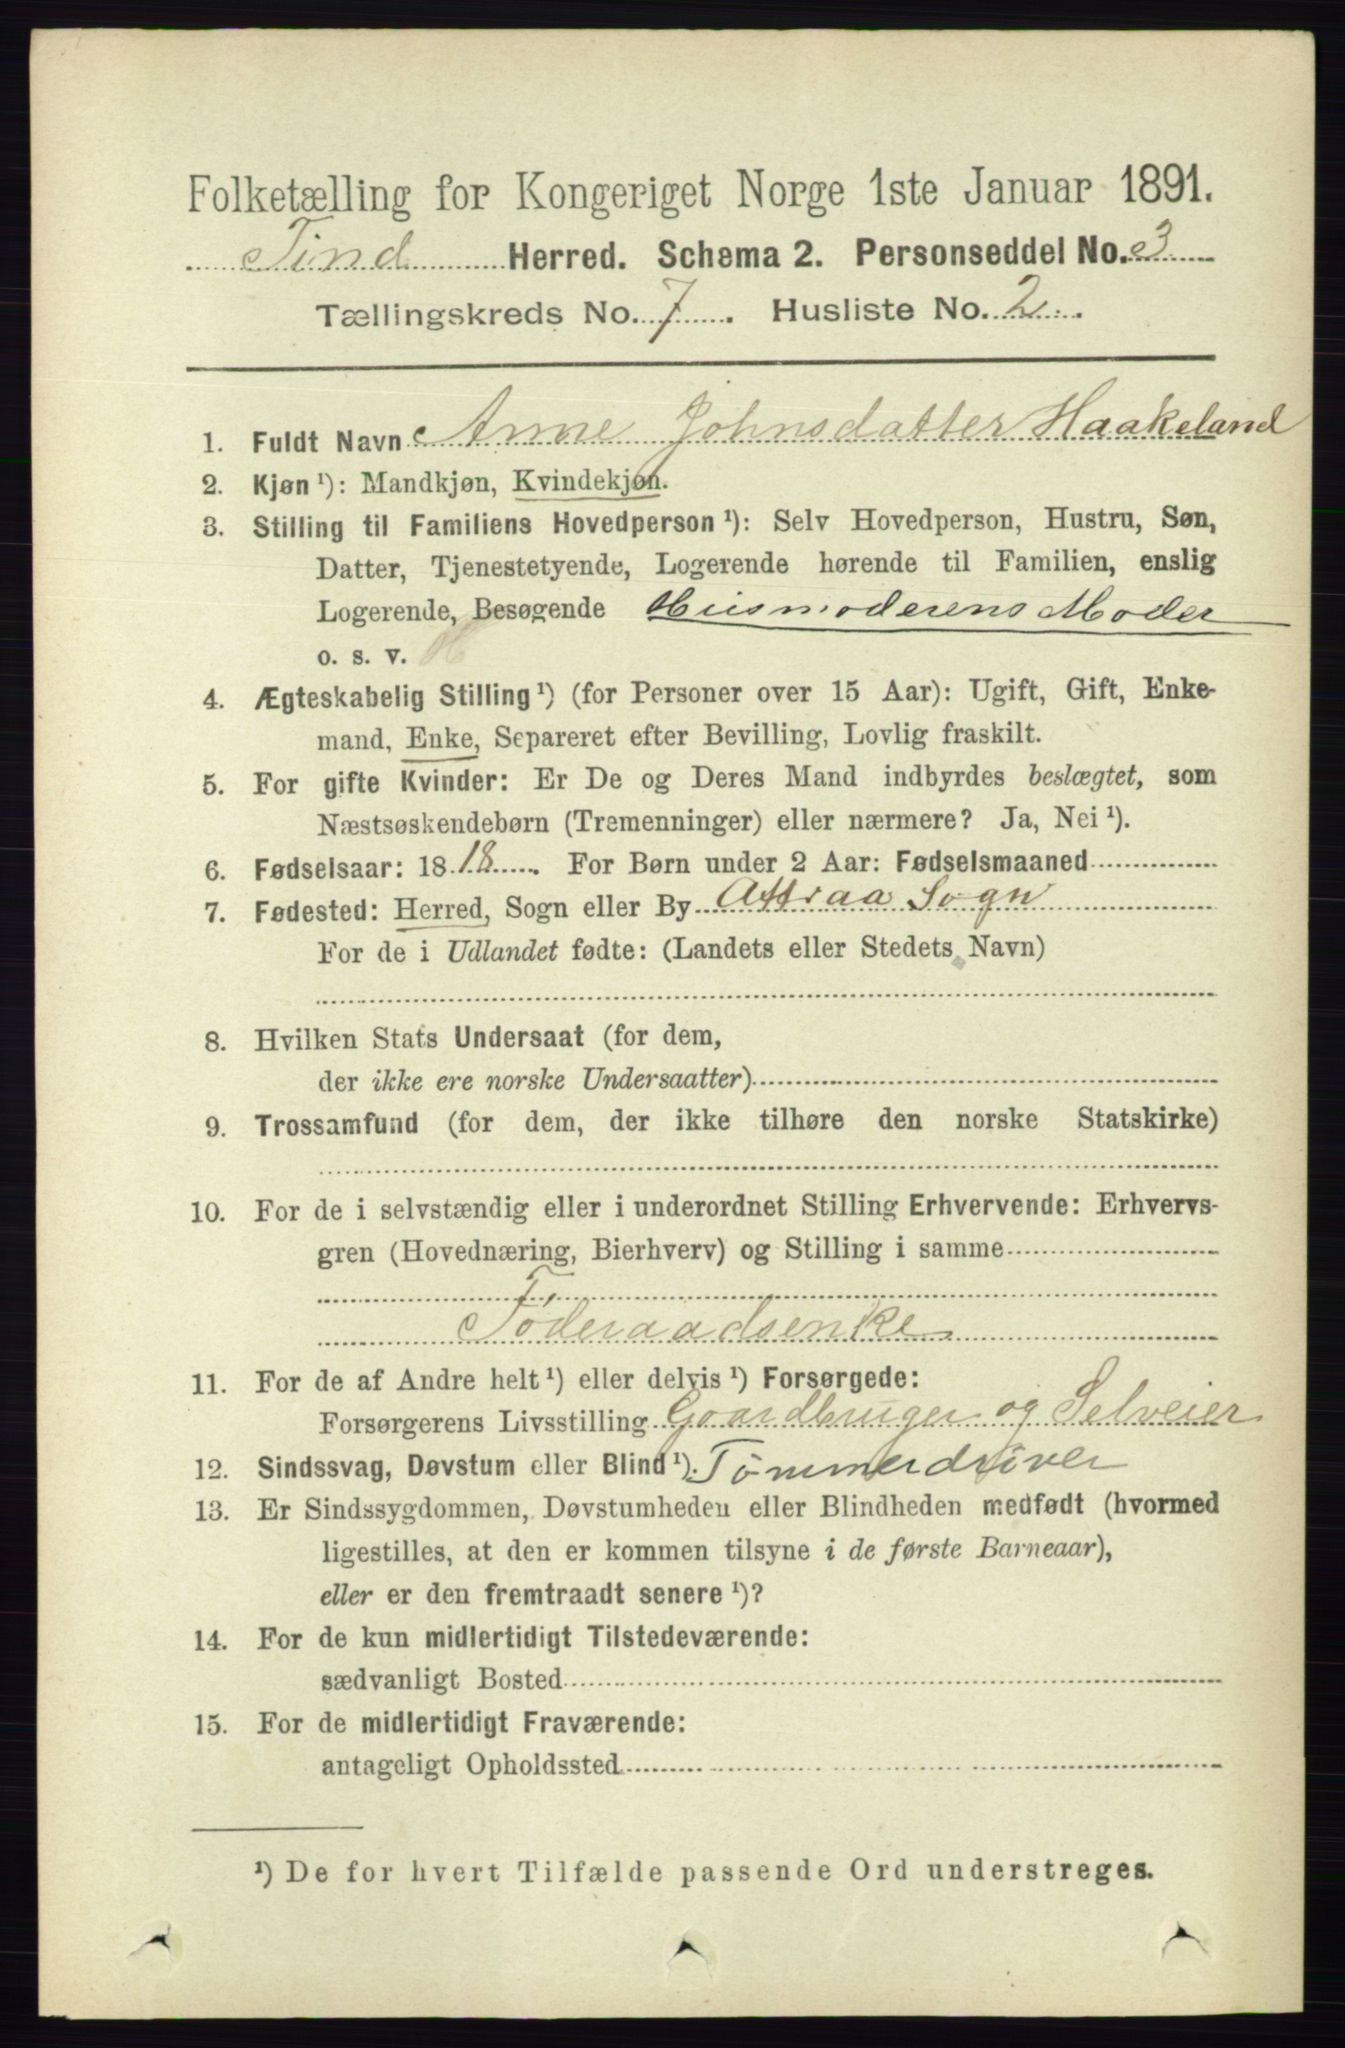 Folketælling for Kongeriget Norge 1ste Januar 1891.
Tind Herred. Schema 2. Personseddel No. 3
Tællingskreds No. 7. Husliste No. 2.
1. Fuldt Navn Anne Johnsdatter Haakeland
2. Kjøn ¹): Mandkjøn, Kvindekjøn.
3. Stilling til Familiens Hovedperson ¹): Selv Hovedperson, Hustru, Søn,
Datter, Tjenestetyende, Logerende hørende til Familien, enslig
Logerende, Besøgende Husmoderens Moder
o. s. v.
4. Ægteskabelig Stilling ¹) (for Personer over 15 Aar): Ugift, Gift, Enke-
mand, Enke, Separeret efter Bevilling, Lovlig fraskilt.
5. For gifte Kvinder: Er De og Deres Mand indbyrdes beslægtet, som
Næstsøskendebørn (Tremenninger) eller nærmere? Ja, Nei ¹).
6. Fødselsaar: 1818. For Børn under 2 Aar: Fødselsmaaned
7. Fødested: Herred, Sogn eller By Attraa Sogn
For de i Udlandet fødte: (Landets eller Stedets Navn)
8. Hvilken Stats Undersaat (for dem,
der ikke ere norske Undersaatter)
9. Trossamfund (for dem, der ikke tilhøre den norske Statskirke)
10. For de i selvstændig eller i underordnet Stilling Erhvervende: Erhvervs-
gren (Hovednæring, Bierhverv) og Stilling i samme
Føderaadsenke
11. For de af Andre helt ¹) eller delvis ¹) Forsørgede:
Forsørgerens Livsstilling Gaardbruger og Selveier
12. Sindssvag, Døvstum eller Blind ¹). Tømmerdriver
13. Er Sindssygdommen, Døvstumheden eller Blindheden medfødt (hvormed
ligestilles, at den er kommen tilsyne i de første Barneaar),
eller er den fremtraadt senere ¹)?
14. For de kun midlertidigt Tilstedeværende:
sædvanligt Bosted
15. For de midlertidigt Fraværende:
antageligt Opholdssted
¹) De for hvert Tilfælde passende Ord understreges.